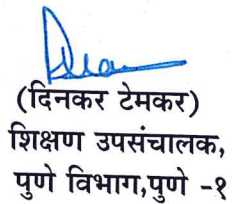 (दिनकर टेमकर)
शिक्षण उपसंचालक,
पुणे विभाग,पुणे -१